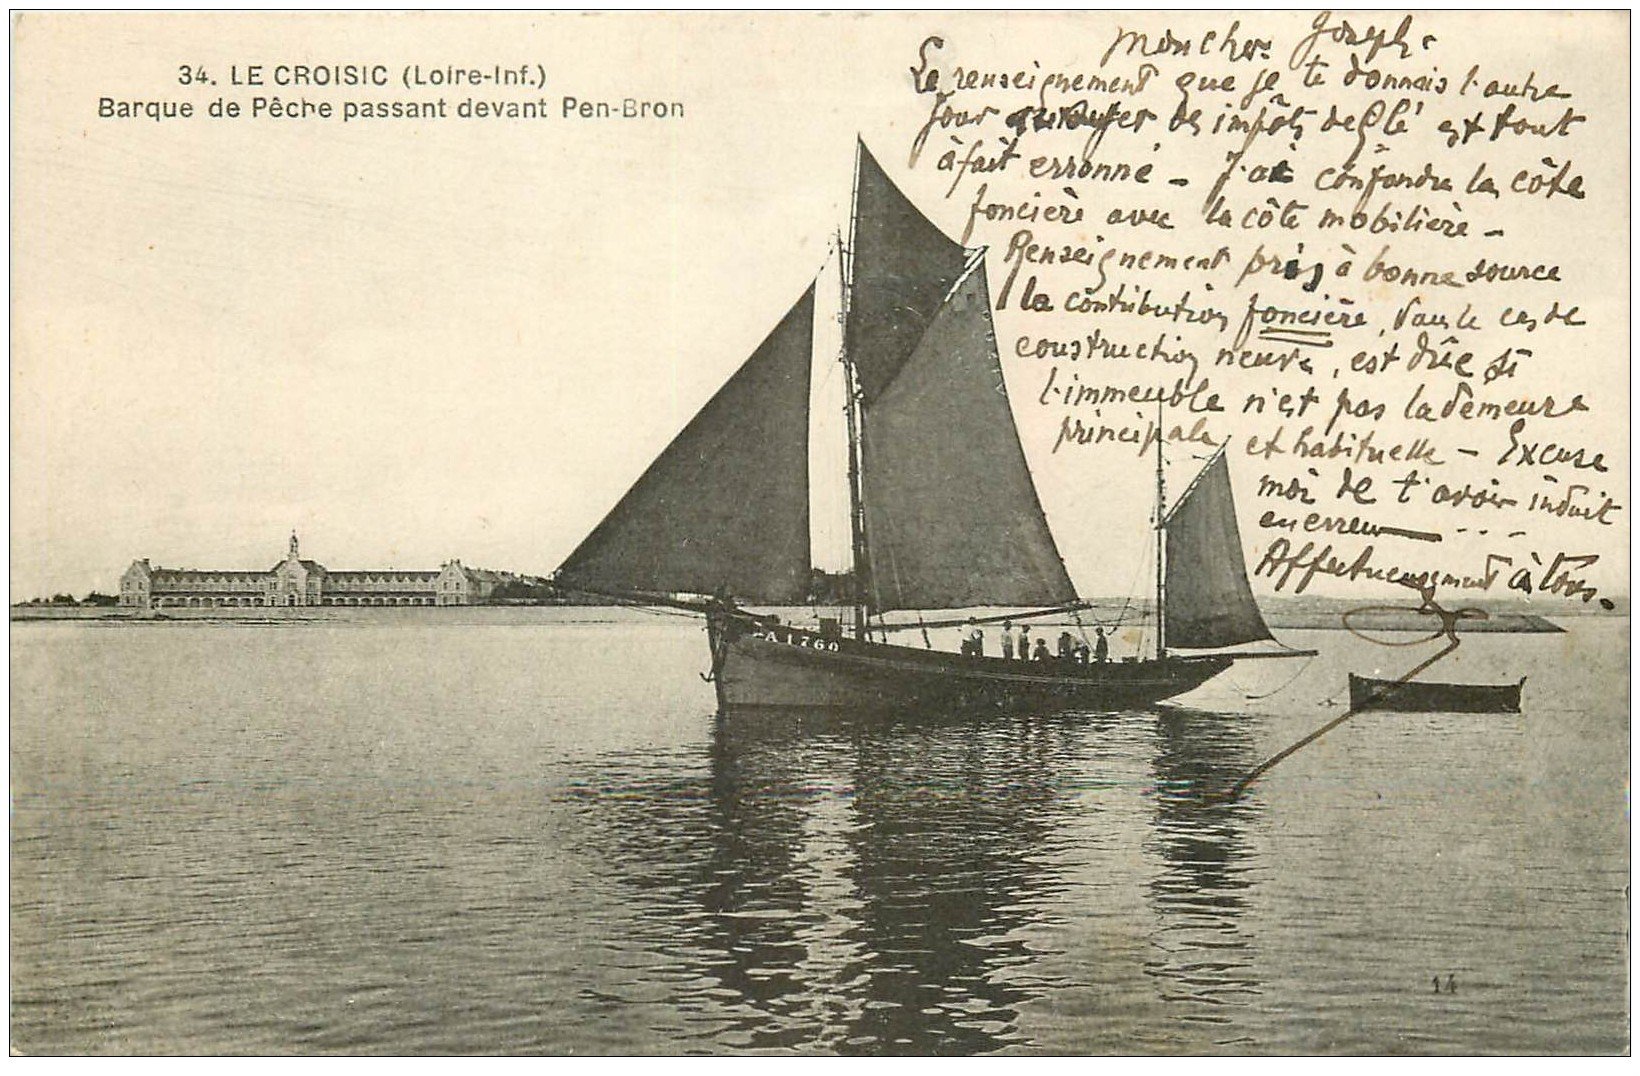 34. LE CROISIC (Loire-Inf.)
Barque de Pêche passant devant Pen-Bron
Mon cher Joseph
Le renseignement que je te donnais l'autre
jour au sujet des impôts de Clé est tout
à fait erronné - J'ai confondu la côte
foncière avec la côte mobilière -
Renseignement pris à bonne source
la contribution foncière, dans le cas de
construction neuve, est dûe si
l'immeuble n'est pas la demeure
principale et habituelle - Excuse
moi de t'avoir induit
en erreur - . . .
Affectueusement à tous.
LA 1760
14